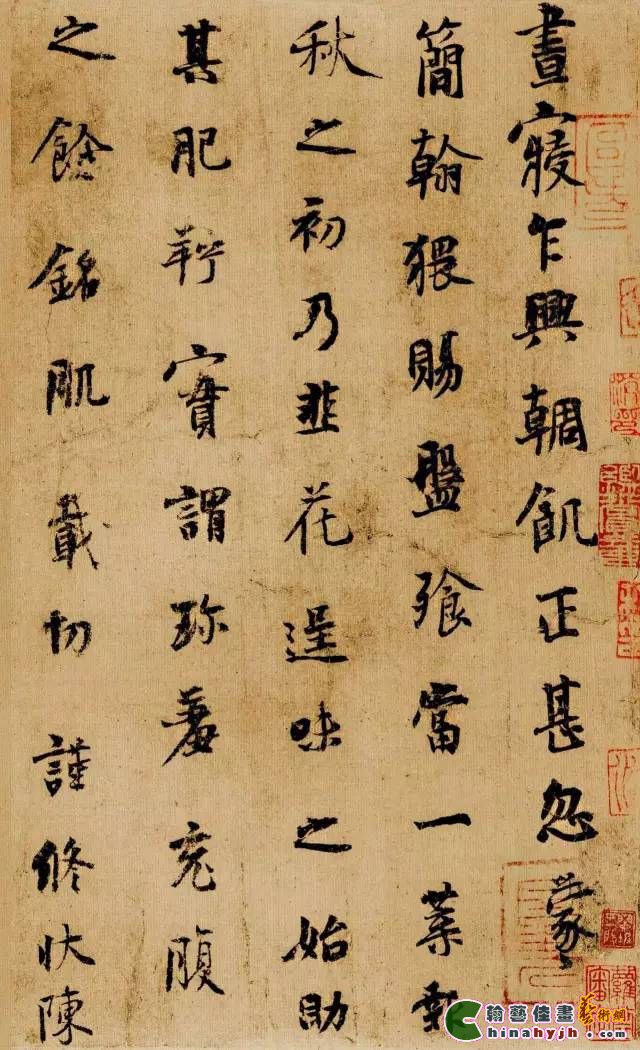 晝寢乍興輖飢正甚忽蒙
簡翰猥賜盤飧當一葉報
秋之初乃韭花逞味之始助
其肥羜實謂珍羞充腹
之餘銘肌載切 謹修狀陳
翰藝佳畫藝術網
Chinahyjh.com